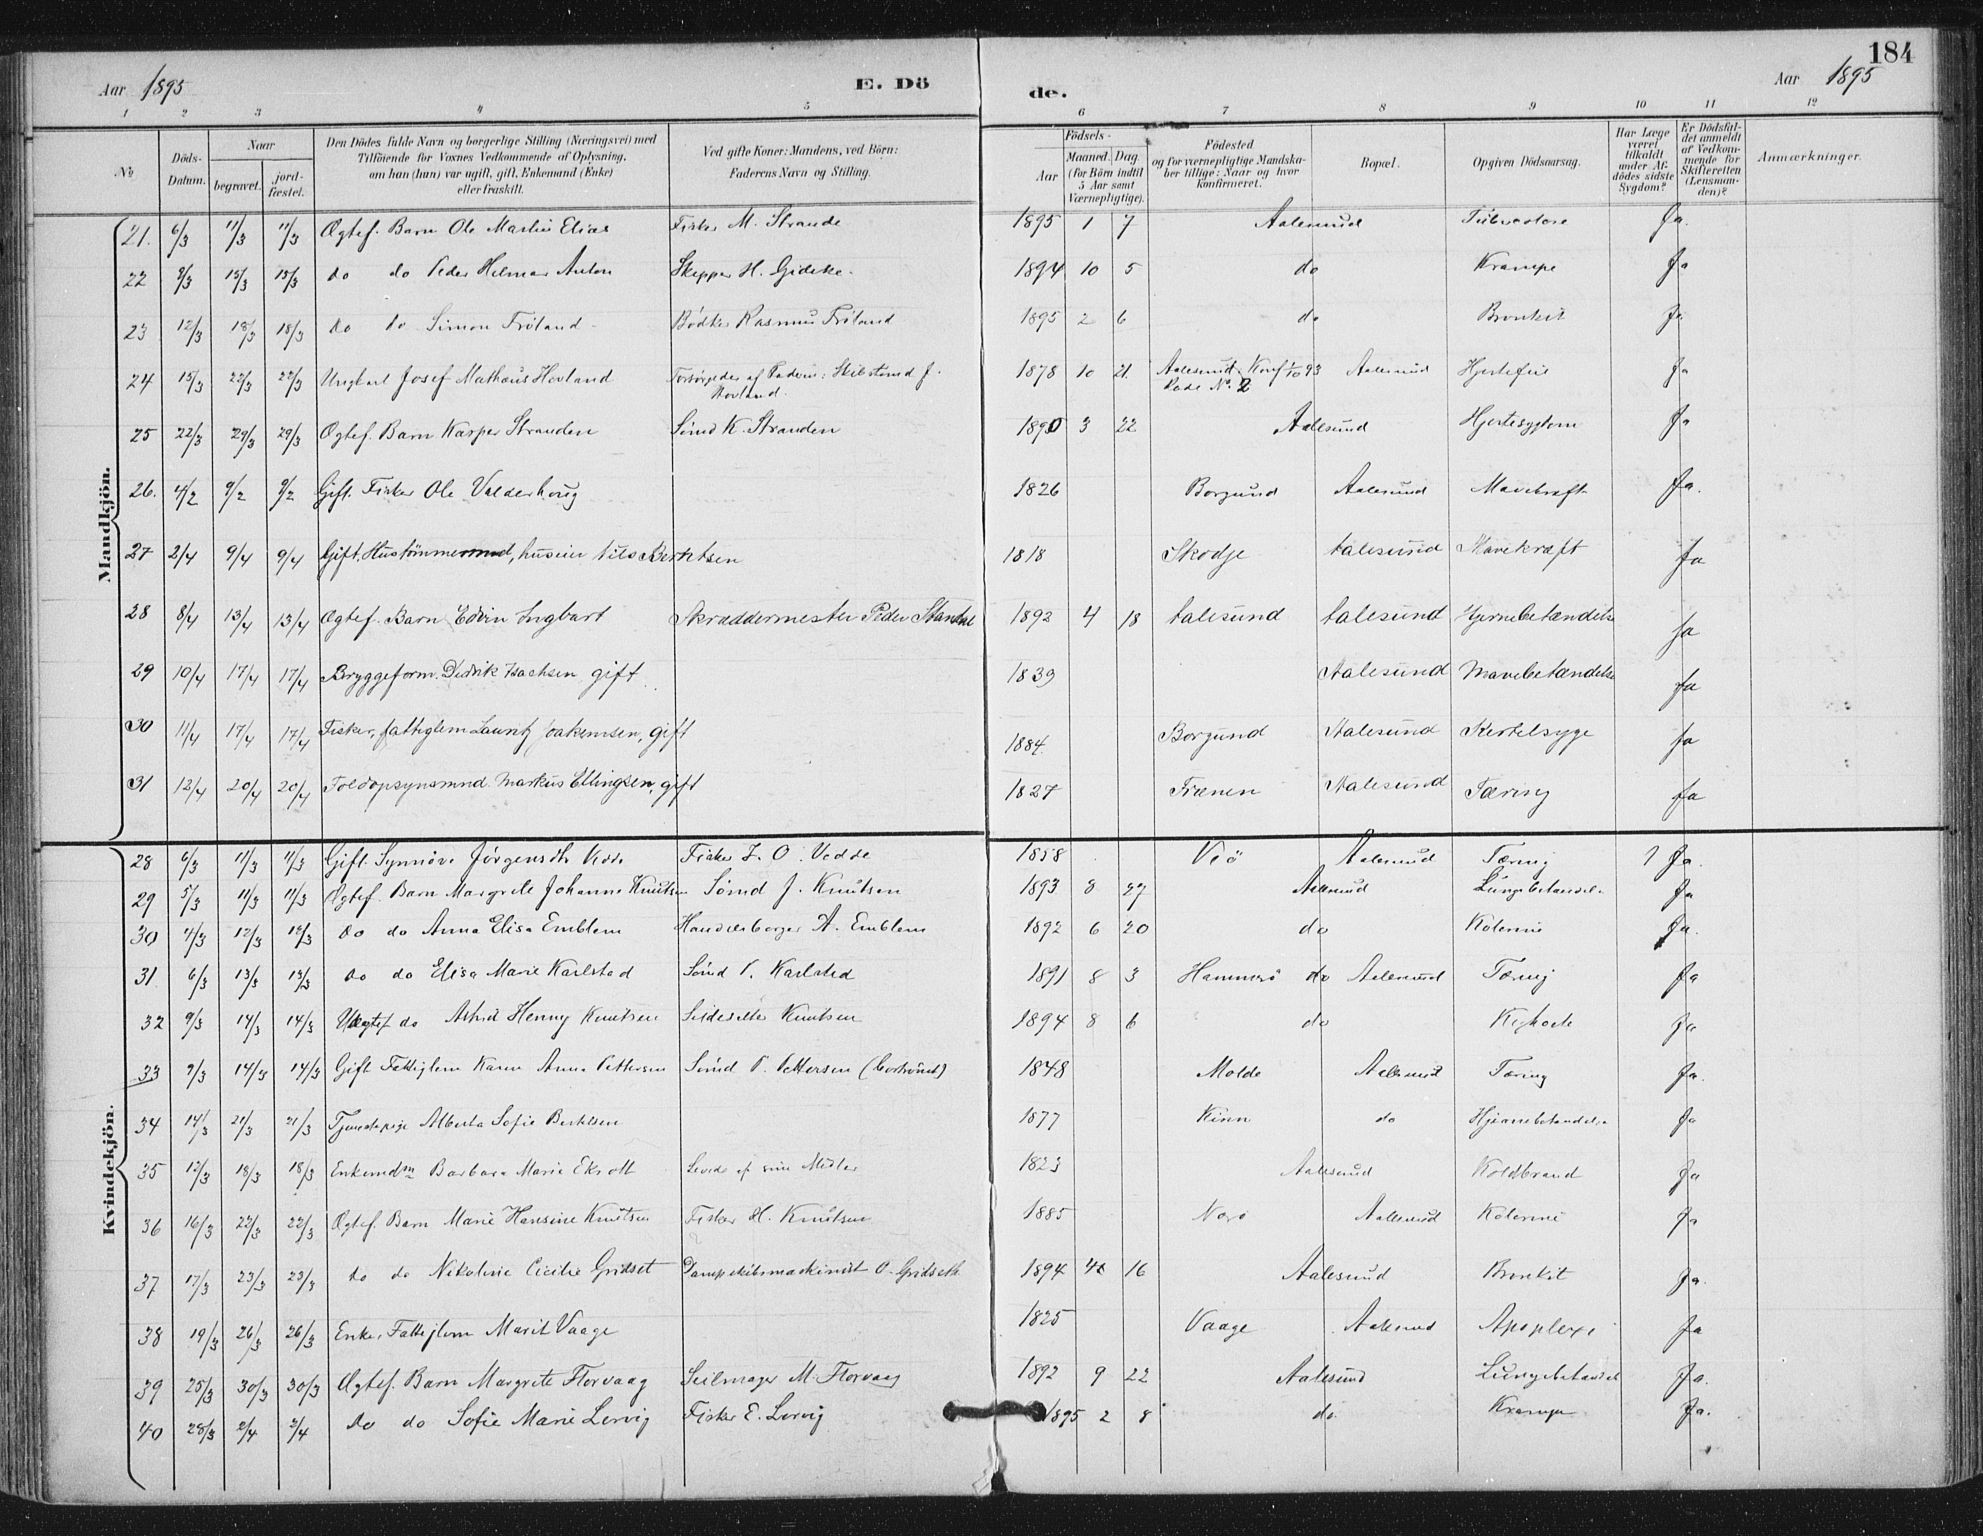 184
Aar 1895 E. Dö de. Aar 1895
1 2 3 4 5 6 7 8 9 10 11 12
No. Döds-Datum. Naar begravet. jord-fæstet. Den Dödes fulde Navn og borgerlige Stilling (Næringsvei) med Tilföiende for Voxnes Vedkommende af Oplysning, om han (hun) var ugift, gift, Enkemand (Enke) eller fraskilt. Ved gifte Koner: Mandens, ved Börn: Faderens Navn og Stilling. Födsels- Aar Maaned. Dag. (for Börn indtil 5 Aar samt Værnepligtige). Födested og for værnepligtige Mandskaber tillige: Naar og hvor konfirmeret. Bopæl. Opgiven Dödsaarsag. Har Læge været tilkaldt under Afdödes sidste Sygdom? Er Dödsfaldet anmeldt af Vedkommende for Skifteretten (Lensmanden)? Anmærkninger.
Mandkjön.
21. 6/3 11/3 11/3 Ægtef. Barn Ole Martin Elias Fisker M. Strande 1895 1 7 Aalesund Ja.
22 8/3 15/3 15/3 do do Peder Helmer Anton Skipper H. Gidske 1894 10 5 do Krampe Ja
23 12/3 18/3 18/3 do do Simon Fröland Bödker Rasmus Fröland 1895 2 6 do Bronkit Ja
24 15/3 22/3 22/3 Ungkarl Josef Mathæus Hovland Forsörgedes af Faderen: Skibstømd J. Hovland. 1878 10 21. Aalesund. Konf 1/10 93 Rode No. 2 Aalesund Hjertefeil Ja
25 22/3 29/3 29/3 Ægtef. Barn Kasper Stranden Sömd K. Stranden 1890 3 22 Aalesund Hjertesygdom Ja
26. 4/2 9/2 9/2 Gift. Fisker Ole Valderhoug 1826 Borgund Aalesund Mavekræft Ja.
27 2/4 9/4 9/4 Gift. Hustömmermnd, huseier Nils Berntsen 1818 Skodje Aalesund Mavekræft Ja
28 8/4 13/4 13/4 Ægtef. Barn Edvin Ingbart Skræddermester Peder Standal 1892 4 18 Aalesund Aalesund Hjernebetændelse Ja
29 10/4 17/4 17/4 Bryggeform. Didrik Isachsen gift 1839 Aalesund Mavebetændelse Ja
30 11/4 17/4 17/4 Fisker, fattiglem Lauritz Joakimsen, gift 1884 Borgund Aalesund Kertelsyge Ja
31 12/4 20/4 20/4 Toldopsynsmnd Markus Ellingsen, gift 1827 Frænen Aalesund Tæring Ja
Kvindekjön.
28 6/3 11/3 11/3 Gift. Synnöve Jörgensdtr Vedde Fisker L. O. Vedde 1858 Veö Aalesund Tæring 1 Ja.
29 5/3 11/3 11/3 Ægtef. Barn Margrete Johanne Knutsen Sömd J. Knutsen 1893 8 27 Aalesund Lungebetændel. Ja
30 4/3 12/3 12/3 do do Anna Elisa Emblem Handelsborger A. Emblem 1892 6 20 do Kolerine Ja.
31 6/3 13/3 13/3 do do Elisa Marie Karlstad Sömd P. Karlstad 1891 8 3 do Aalesund Tæring Ja
32 9/3 14/3 14/3 Uægtef do Astrid Henny Knutsen Sildesalter Knutsen 1894 8 6 do Kighoste Ja
33 9/3 14/3 14/3 Gift Fattiglem Karen Anna Pettersen Sömd P. Pettersen 1848 Molde Aalesund Tæring Ja.
34 14/3 21/3 21/3 Tjenestepige Alberta Sofie Bertelsen 1877 Kinn do Hjernebetændelse Ja
35 12/3 18/3 18/3 Barbara Marie Ekroll Levede af sine Midler 1823 Aalesund Koldbrand Ja
36 16/3 22/3 22/3 Ægtef. Barn Marie Hansine Knutsen Fisker H. Knutsen 1885 Aalesund Kolerine Ja
37 17/3 23/3 23/3 do do Nikoline Cicilie Gridset Dampskibsmaskinist O. Gridseth 1894 4 16 Aalesund Bronkit Ja.
38 19/3 26/3 26/3 Enke, Fattiglem Marit Vaage 1825 Vaage Aalesund Apoplexi Ja
39 25/3 30/3 30/3 Ægtef. Barn Margrete Florvaag Seilmager M. Florvaag 1892 9 22 Aalesund Lungebetændel Ja.
40 28/3 2/4 2/4 do do Sofie Marie Lervig Fisker E. Lervig 1895 2 8 do Krampe Ja.